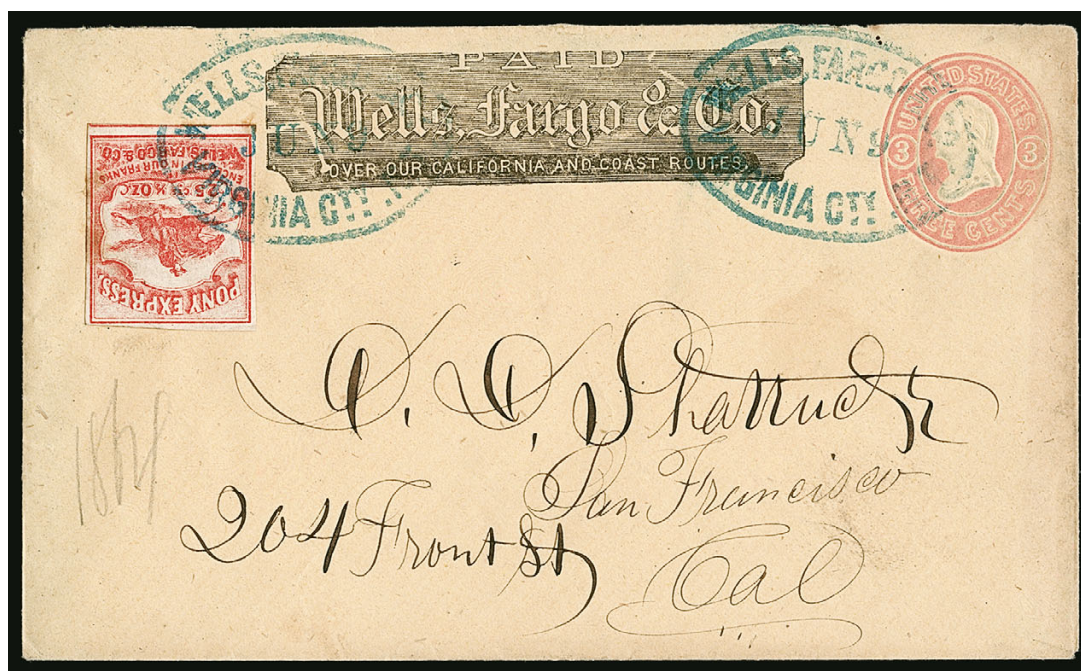 PAID
Wells, Fargo & Co.
OVER OUR CALIFORNIA AND COAST ROUTES.
WELLS,
JUN 9
VIRGINIA CTY
WELLS, FARGO
JUN 9
VIRGINIA CTY
UNITED STATES
3 3
THREE CENTS
PONY EXPRESS.
25 C. ½ OZ.
ENC IN OUR FRANKS
WELLS, FARGO & CO.
D. D. Shattuck
San Francisco
204 Front St
Cal
1864